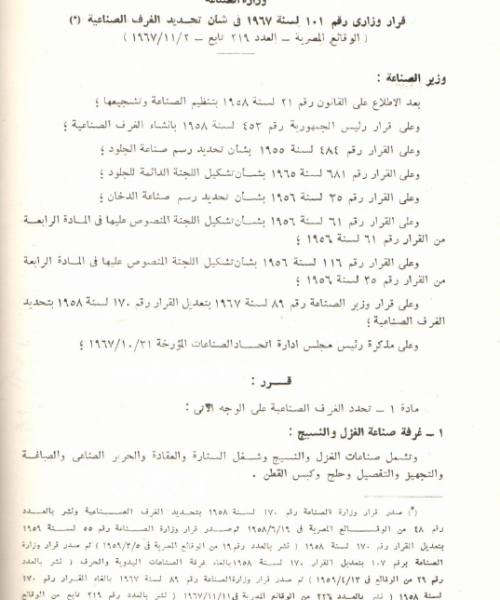 وزارة الصناعة
قرار وزارى رقم ١٠١ لسنة ١٩٦٧ فى شأن تحديد الغرف الصناعية (*)
( الوقائع المصرية ــ العدد ٢١٩ تابع ــ ١٩٦٧/١١/٢ )
وزير الصناعة :
بعد الاطلاع على القانون رقم ٢١ لسنة ١٩٥٨ بتنظيم الصناعة وتشجيعها ؛
وعلى قرار رئيس الجمهورية رقم ٤٥٣ لسنة ١٩٥٨ بانشاء الغرف الصناعية ؛
وعلى القرار رقم ٤٨٤ لسنة ١٩٥٥ بشأن تحديد رسم صناعة الجلود ؛
وعلى القرار رقم ٦٨١ لسنة ١٩٦٥ بشأن تشكيل اللجنة الدائمة للجلود ؛
وعلى القرار رقم ٣٥ لسنة ١٩٥٦ بشأن تحديد رسم صناعة الدخان ؛
وعلى القرار رقم ٦١ لسنة ١٩٥٦ بشأن تشكيل اللجنة المنصوص عليها فى المادة الرابعة
من القرار رقم ٦١ لسنة ١٩٥٦ ؛
وعلى القرار رقم ١١٦ لسنة ١٩٥٦ بشأن تشكيل اللجنة المنصوص عليها فى المادة الرابعة
من القرار رقم ٣٥ لسنة ١٩٥٦ ؛
وعلى قرار وزير الصناعة رقم ٨٩ لسنة ١٩٦٧ بتعديل القرار رقم ١٧٠ لسنة ١٩٥٨ بتحديد
الغرف الصناعية ؛
وعلى مذكرة رئيس مجلس ادارة اتحاد الصناعات المؤرخة ١٩٦٧/١٠/٢١ ؛
قــرر :
مادة ١ ــ تحدد الغرف الصناعية على الوجه الآتى :
١ ــ غرفة صناعة الغزل والنسيج :
وتشمل صناعات الغزل والنسيج وشغل الستارة والعقادة والحرير الصناعى والصباغة
والتجهيز والتفصيل وحلج وكبس القطن .
(*) صدر قرار وزارة الصناعة رقم ١٧٠ لسنة ١٩٥٨ بتحديد الغرف الصناعية ونشر بالعدد
رقم ٤٨ من الوقائع المصرية فى ١٩٥٨/٦/١٩ ثم صدر قرار وزارة الصناعة رقم ٥٥ لسنة ١٩٥٩
بتعديل القرار ١٧٠ لسنة ١٩٥٨ ( نشر بالعدد رقم ١٩ من الوقائع المصرية فى ١٩٥٩/٣/٥ ) ثم صدر قرار وزارة
الصناعة برقم ١٠٧ بتعديل القرار ١٧٠ لسنة ١٩٥٨ بالغاء غرفة الصناعات اليدوية والحرف ( نشر بالعدد
رقم ٢٩ من الوقائع فى ١٩٥٩/٤/١٣ ) ثم صدر قرار وزارة الصناعة رقم ٨٩ لسنة ١٩٦٧ بالغاء القرار رقم ١٧٠
لسنة ١٩٥٨ ( نشر بالعدد ٢٢٦ من الوقائع المصرية فى ١٩٦٧/١١/١١ ) ونشر بالعدد رقم ٢١٩ تابع من الوقائع